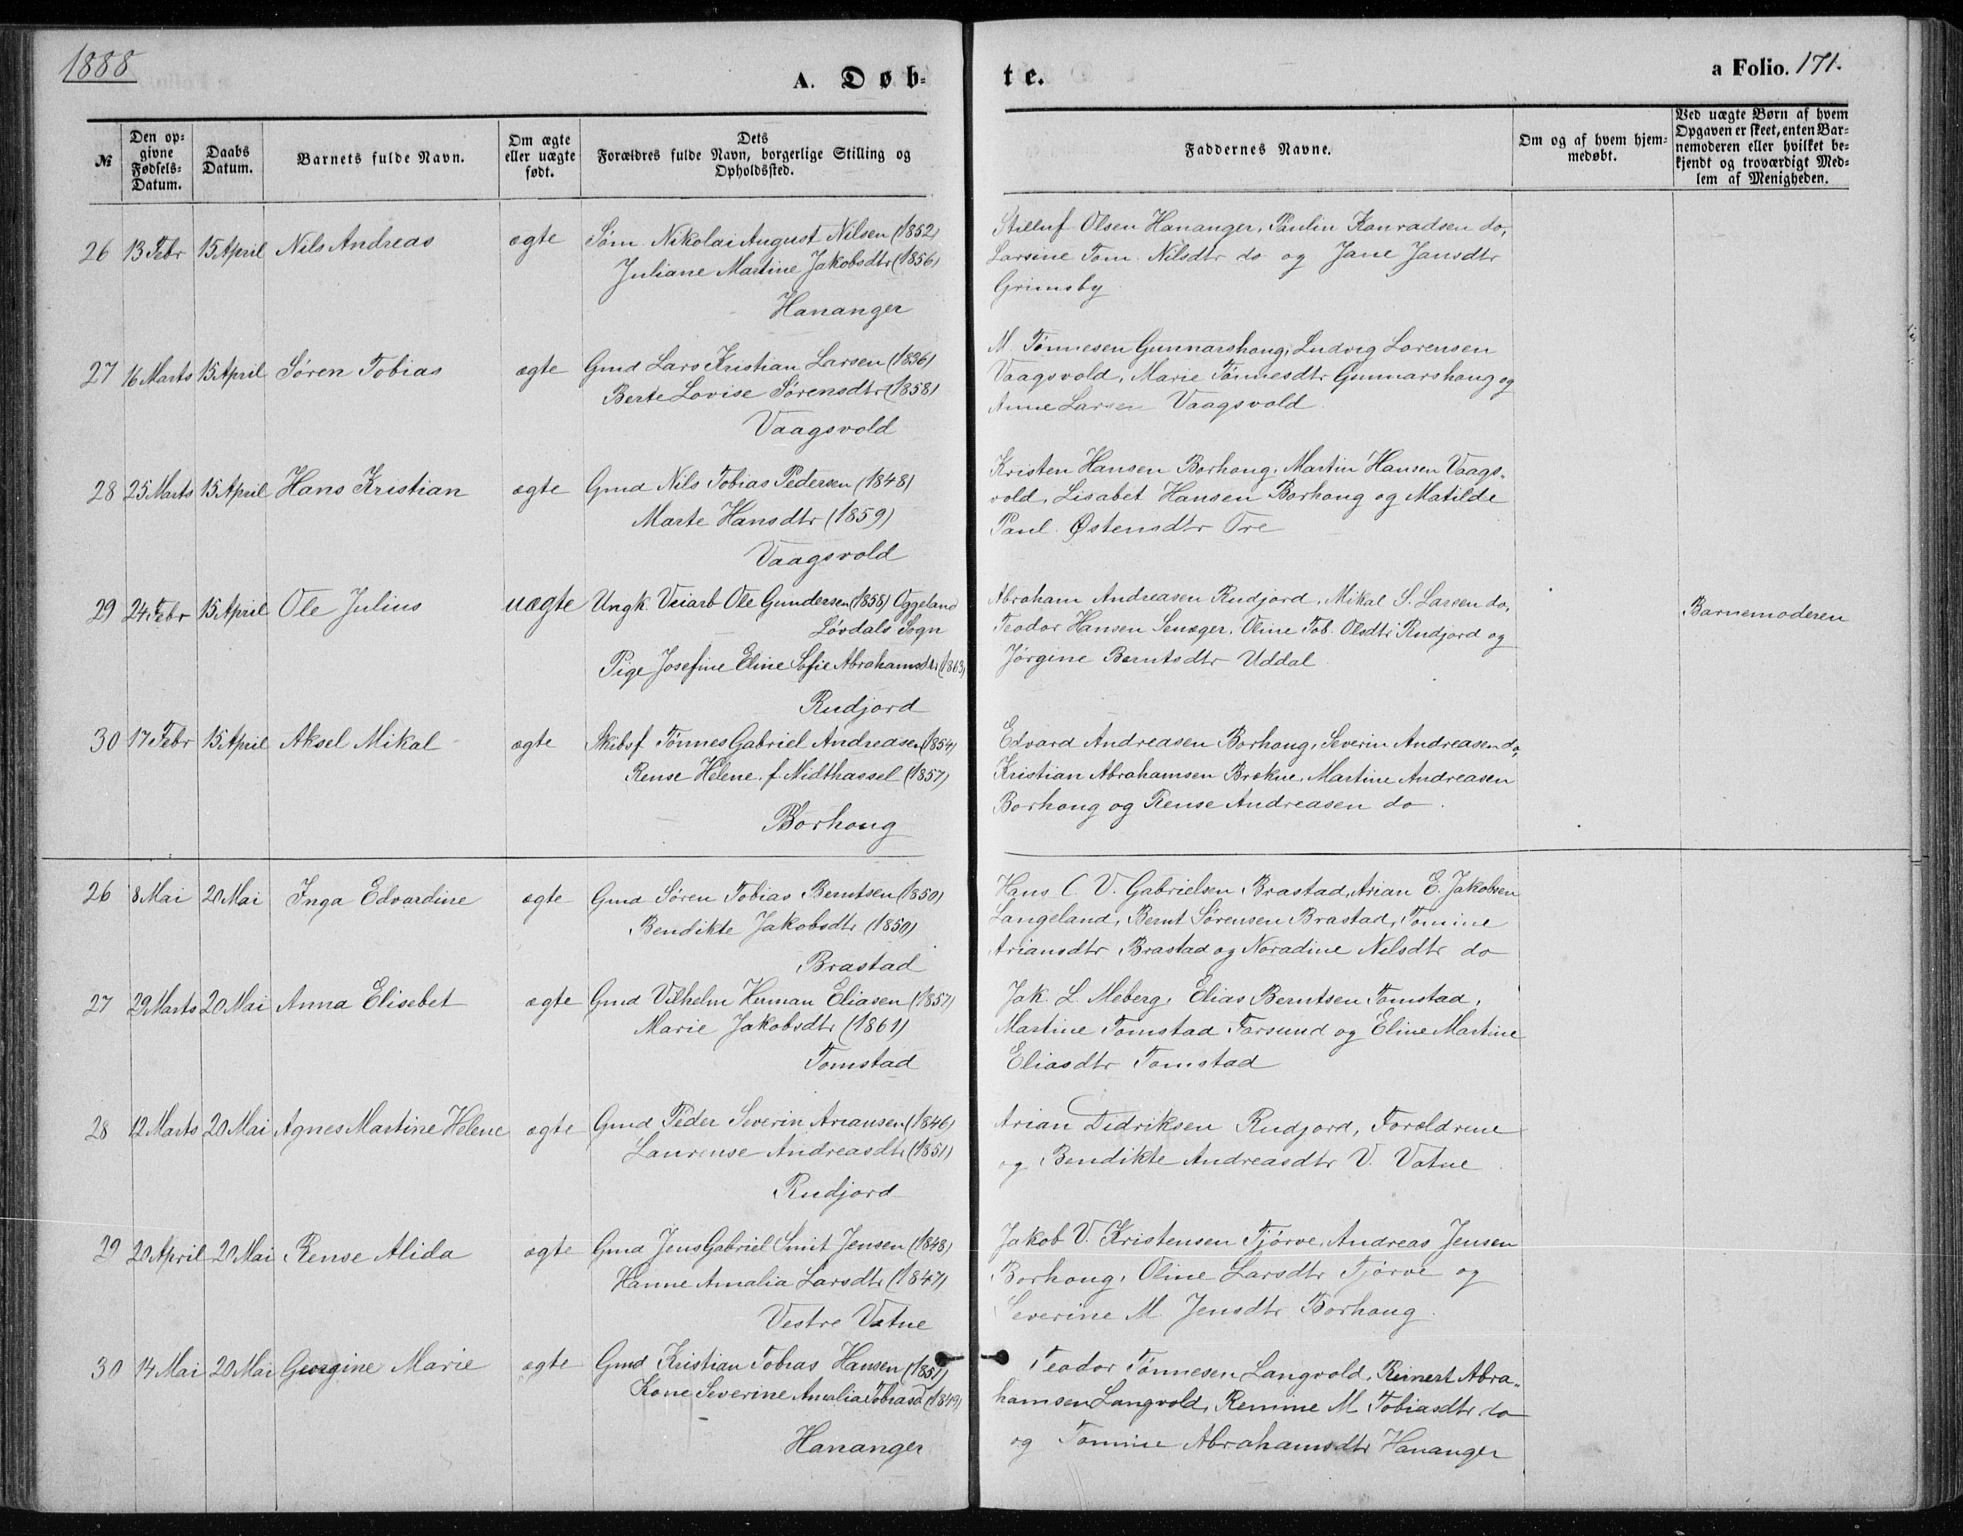 1888
A. Døb-
te.
a Folio. 171.
№
Den op-
givne
Fødsels-
Datum.
Daabs
Datum.
Barnets fulde Navn.
Om ægte
eller uægte
født.
Dets
Forældres fulde Navn, borgerlige Stilling og
Opholdssted.
Faddernes Navne.
Om og af hvem hjem-
medøbt.
Ved uægte Børn af hvem
Opgaven er skeet, enten Bar-
nemoderen eller hvilket be-
kjendt og troværdigt Med-
lem af Menigheden.
26 13 Febr 15 April Nils Andreas ægte Søm. Nikolai August Nilsen (1852)
Juliane Martine Jakobsdtr (1856)
Hananger
Olsen Hananger, Paulin Konradsen do,
Larsine Tom. Nilsdtr do og Jane Jansdtr
Grimsby
27 16 Marts 15 April Søren Tobias ægte Gmd Lars Kristian Larsen (1836)
Berte Lovise Sørensdtr (1858)
Vaagsvold
M. Tønnesen Gunnarshaug, Ludvig Lorensen
Vaagsvold, Marie Tønnesdtr Gunnarshaug og
Anne Larsen Vaagsvold
28 25 Marts 15 April Hans Kristian ægte Gmd Nils Tobias Pedersen (1848)
Marte Hansdtr (1859)
Vaagsvold
Kristen Hansen Borhaug, Martin Hansen Vaags-
vold, Lisabet Hansen Borhaug og Matilde
Paul. Østensdtr Ore
29 24 Febr 15 April Ole Julius uægte Ungk. Veiarb Ole Gundersen (1858) Oggeland
Løvdals Sogn
Pige Josefine Eline Sofie Abrahamsdtr (1863)
Rudjord
Abraham Andreasen Rudjord, Mikal S. Larsen do,
Teodor Hansen, Oline Tob. Olsdtr Rudjord og
Jørgine Berntsdtr Uddal
Barnemoderen
30 17 Febr 15 April Aksel Mikal ægte Skibsf. Tønnes Gabriel Andreasen (1854)
Rense Helene f. Midthassel (1857)
Borhaug
Edvard Andreasen Borhaug, Severin Andreasen do,
Kristian Abrahamsen Brekne, Martine Andreasen
Borhaug og Rense Andreasen do.
26 8 Mai 20 Mai Inga Edvardine ægte Gmd Søren Tobias Berntsen (1850)
Bendikte Jakobsdtr (1850)
Brastad
Hans C. V. Gabrielsen Brastad, Arian E. Jakobsen
Langeland, Bernt Sørensen Brastad, Tomine
Ariansdtr Brastad og Noradine Nilsdtr do
27 29 Marts 20 Mai Anna Elisebet ægte Gmd Vilhelm Herman Eliasen (1857)
Marie Jakobsdtr (1861)
Tomstad
Jak. L. Meberg, Elias Berntsen Tomstad,
Martine Tomstad Farsund og Eline Martine
Eliasdtr Tomstad
28 12 Marts 20 Mai Agnes Martine Helene ægte Gmd Peder Severin Ariansen (1846)
Laurense Andreasdtr (1851)
Rudjord
Arian Didriksen Rudjord, Forældrene
og Bendikte Andreasdtr V. Vatne
29 20 April 20 Mai Rense Alida ægte Gmd Jens Gabriel Smit Jensen (1848)
Hanne Amalia Larsdtr (1847)
Vestre Vatne
Jakob V. Kristensen Tjørve, Andreas Jensen
Borhaug, Oline Larsdtr Tjørve og
Severine M. Jensdtr Borhaug.
30 14 Mai 20 Mai Georgine Marie ægte Gmd Kristian Tobias Hansen (1851)
Kone Severine Amalia Tobiasd (1849)
Hananger
Teodor Tønnesen Langvold, Reinert Abra-
hamsen Langvold, Remine M. Tobiasdtr do
og Tomine Abrahamsdtr Hananger